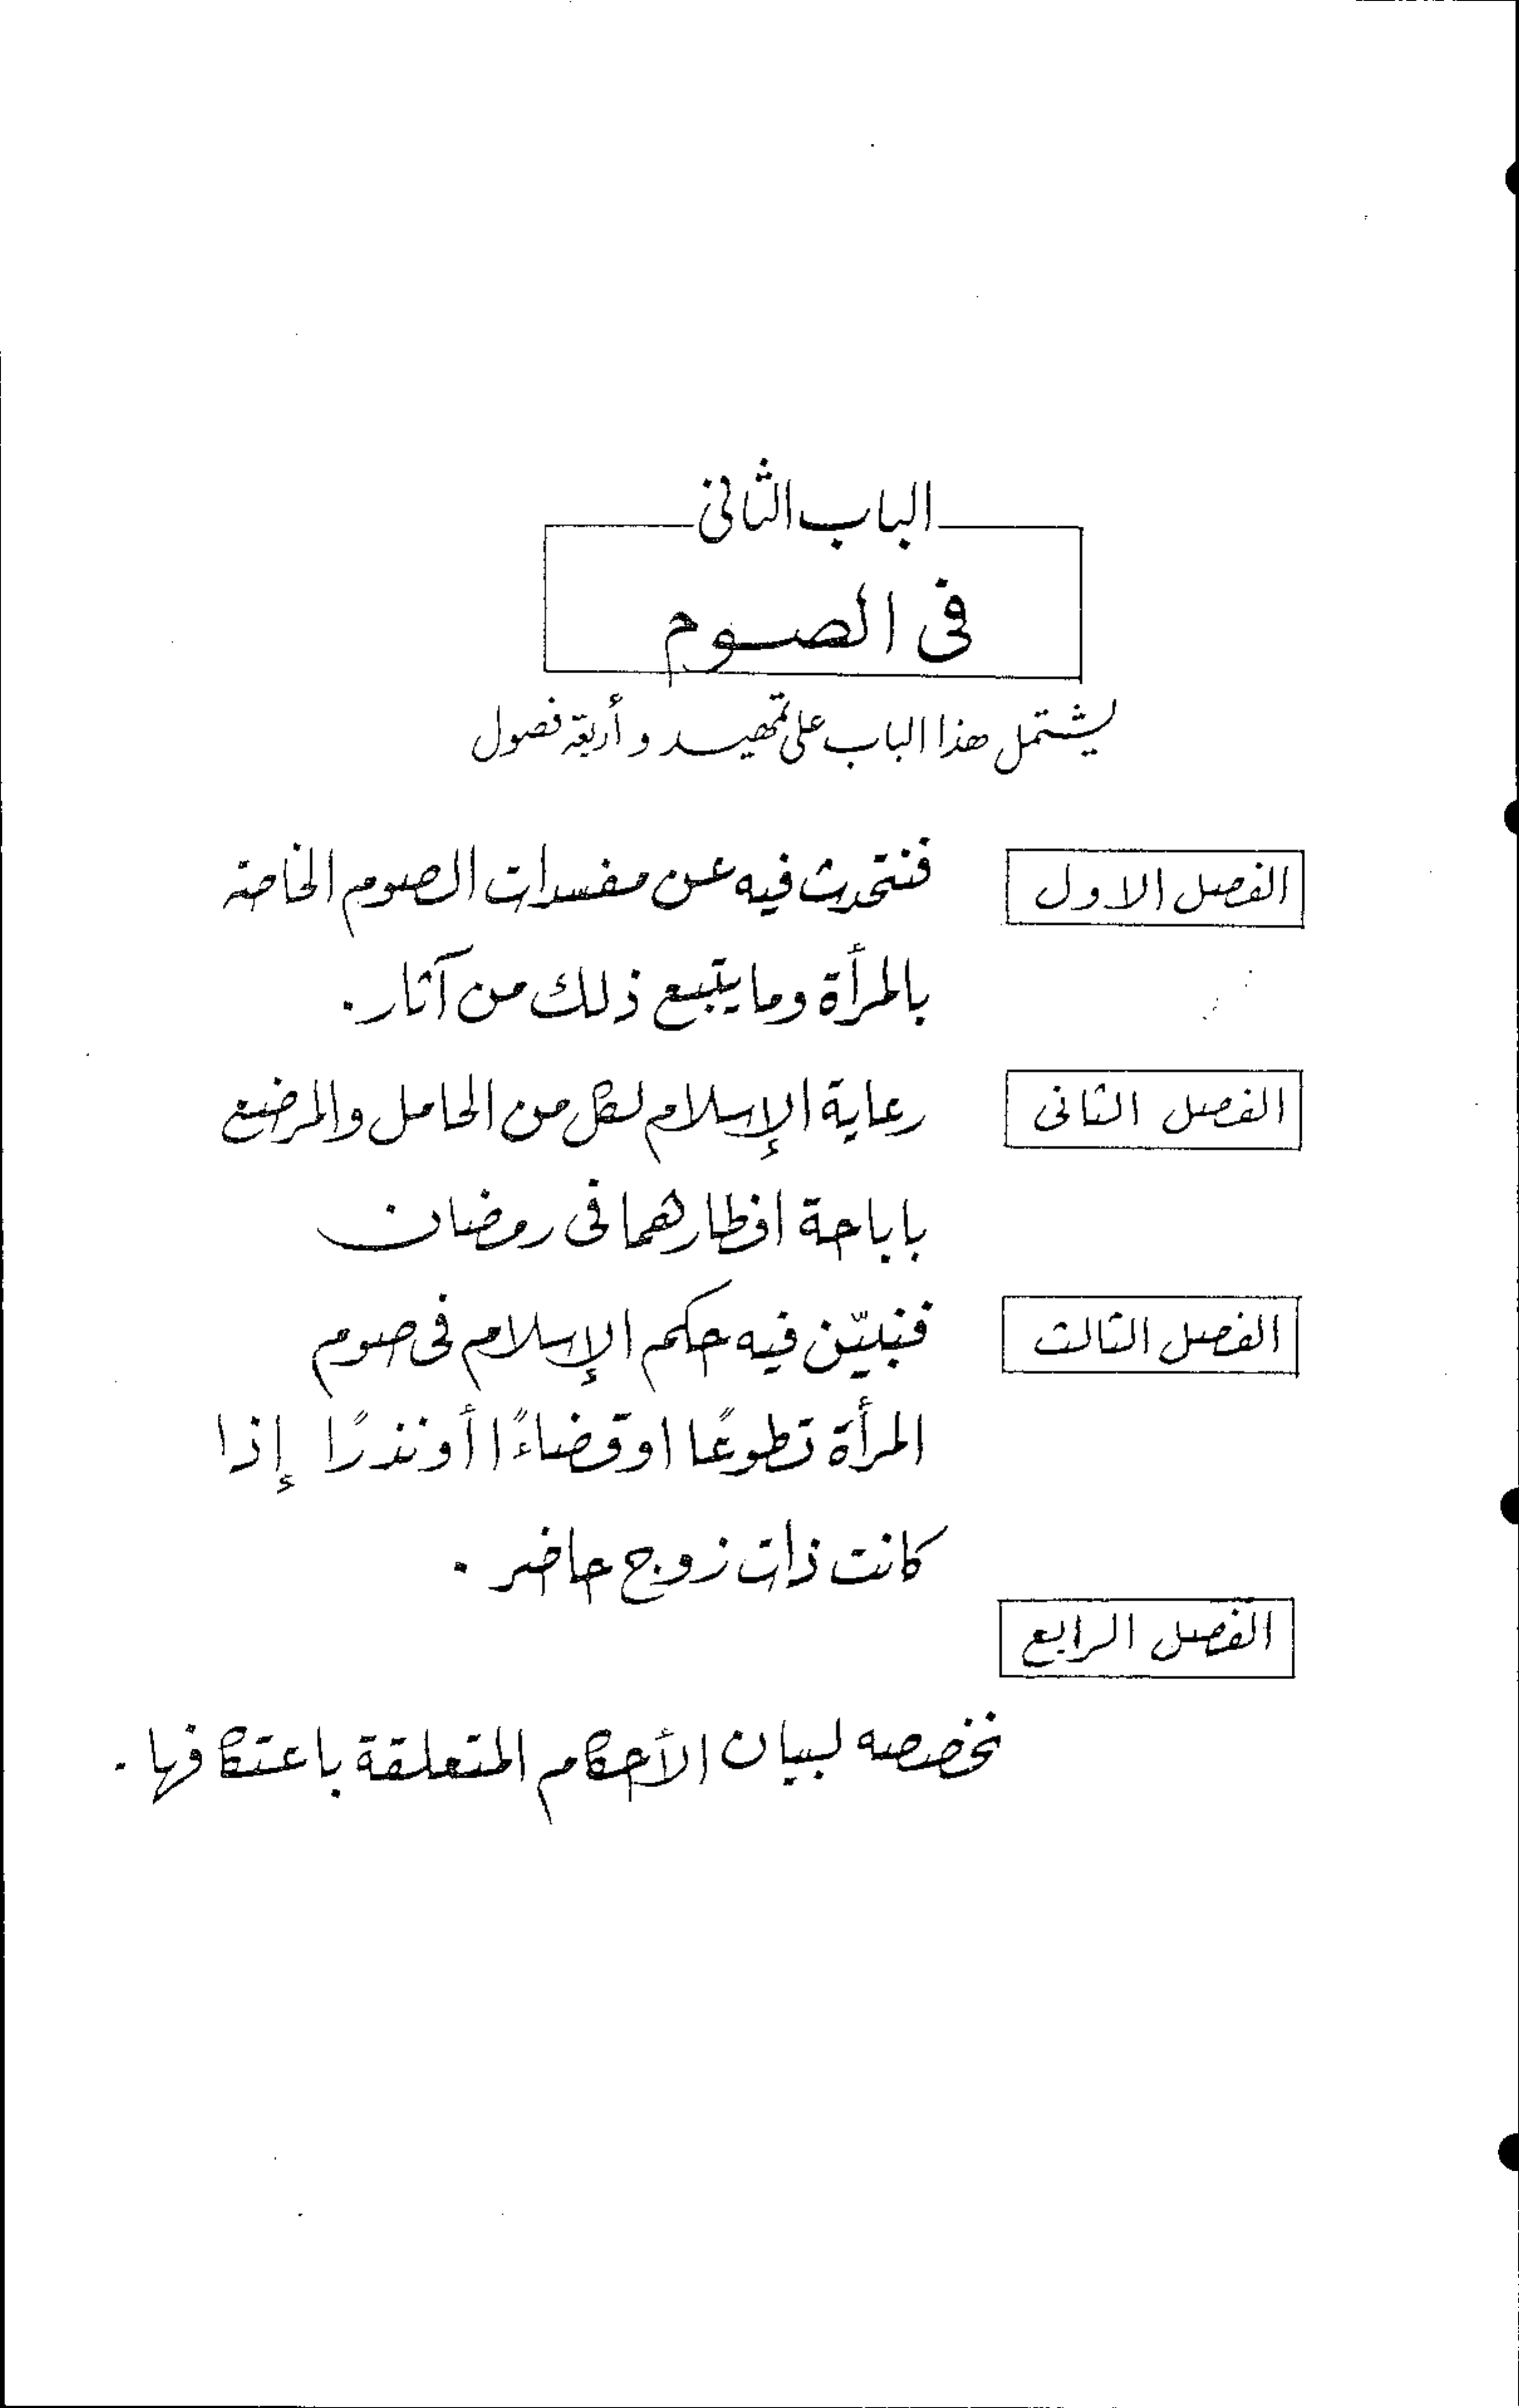 الباب الثانى
فى الصوم
يشتمل هذا الباب على تمهيد وأربعة فصول
الفصل الاول فنتحدث فيه عن مفسدات الصوم الخاصة
بالمرأة وما يتبع ذلك من آثار.
الفصل الثانى رعاية الإسلام لكل من الحامل والمرضع
باباحة افطارهما فى رمضان
الفصل الثالث فنبيّن فيه حكم الإسلام فى صوم
المرأة تطوعًا او قضاءًا أو نذرًا إذا
كانت ذات زوج حاضر.
الفصل الرابع
نخصصه لبيان الأحكام المتعلقة باعتكافها.